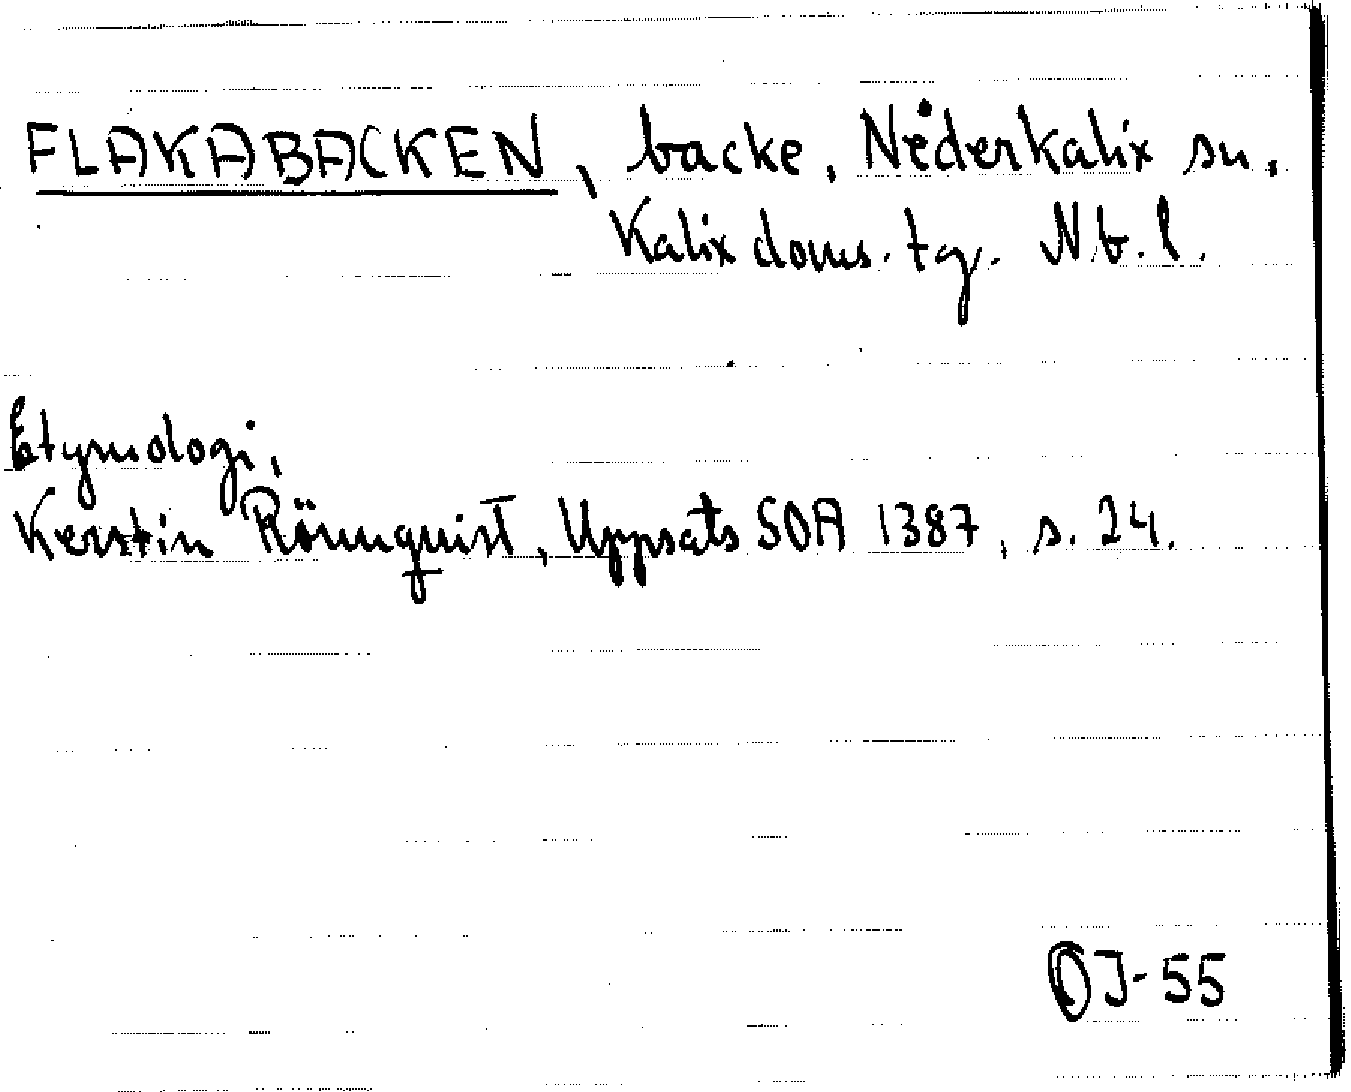 FLAKABACKEN, backe, Nederkalix sn.
Kalix doms. tg. Nb. l.
Etymologi,
Kerstin Rönnquist, Uppsats SOA 1387, s. 24.
OJ-55